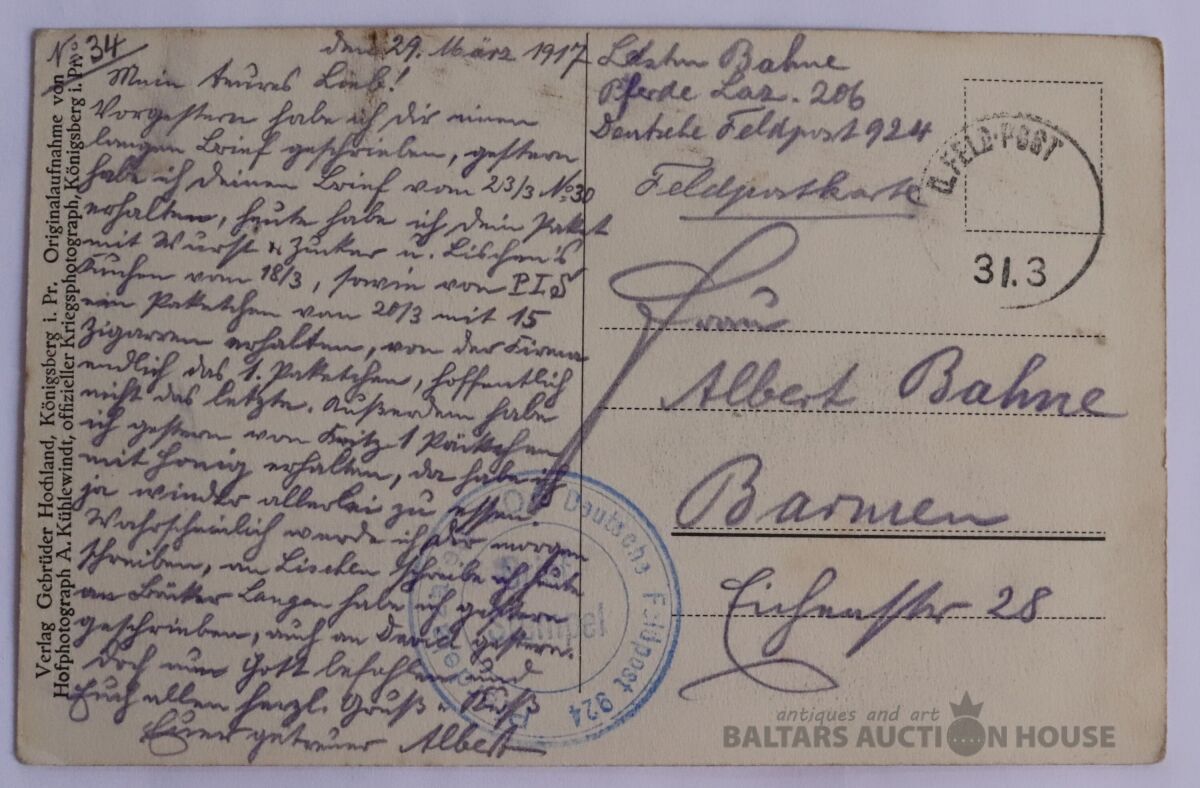 No 34
den 29. März 1917
Mein teures Lieb!
Vorgestern habe ich dir einen
langen Brief geschrieben, gestern
habe ich deinen Brief vom 23/3 No 30
erhalten, heute habe ich dein Paket
mit Wurst & Zucker u. Lischen's
Kuchen vom 18/3, sowie von
ein Paketchen vom 20/3 mit 15
Zigarren erhalten, von der Firma
endlich das 1. Paketchen, hoffentlich
nicht das letzte. Außerdem habe
ich gestern von Fritz 1 Päckchen
mit Honig erhalten, da habe ich
ja wieder allerlei zu essen.
Wahrscheinlich werde ich dir morgen
schreiben, an Lischen schreibe ich heute
an Bäcker Langen habe ich gestern
geschrieben, auch an David gestern.
Doch nun Gott befohlen und
Euch allen herzl. Gruß u. Kuß
Euer getreuer Albert
Verlag Gebrüder Hochland, Königsberg i. Pr. Originalaufnahme von
Hofphotograph A. Kühlewindt, offizieller Kriegsphotograph, Königsberg i. Pr.
Bahne
Pferde Laz. 206
Deutsche Feldpost 924
Feldpostkarte
FELD-POST
31.3
Frau
Albert Bahne
Barmen
Eichenstr 28
Deutsche Feldpost 924
Stempel
antiques and art
BALTARS AUCTION HOUSE